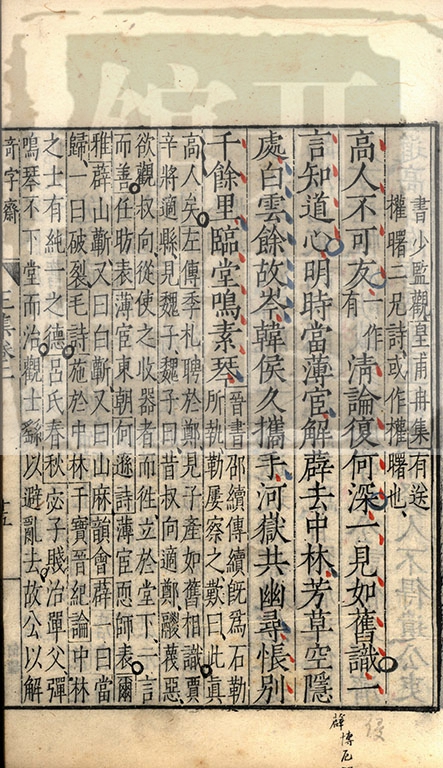 書少監觀皇甫冉集有送
權曙二兄詩或作權曙也
高人不可友有一作清論復何深一見如舊識一
言知道心明時當薄宦解薜去中林芳草空隱
處白雲餘故岑韓侯久攜手河嶽共幽尋悵別
千餘里臨堂鳴素琴
晉書邵續傳續既爲石勒
所執勒屢察之歎曰此真
高人矣左傳季札聘於鄭見子產如舊相識賈
辛將適縣見魏子魏子曰昔叔向適鄭鬷蔑惡
欲觀叔向從使之收器者而徃立於堂下一言
而善任昉表薄宦東朝何遜詩薄宦恧師表爾
雅薜山蘄又曰白蘄又曰山麻韻會薜一曰當
歸一曰破裂毛詩施於中林干寶晉紀論中林
之士有純一之德呂氏春秋宓子賤治單父彈
鳴琴不下堂而治觀士繇以避亂去故公以解
奇字齋
後
薜博厄